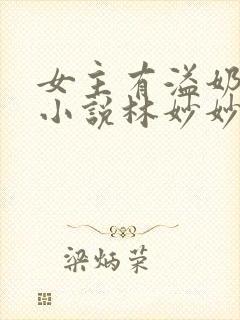 女主有溢奶
小说林妙妙
梁炳荣